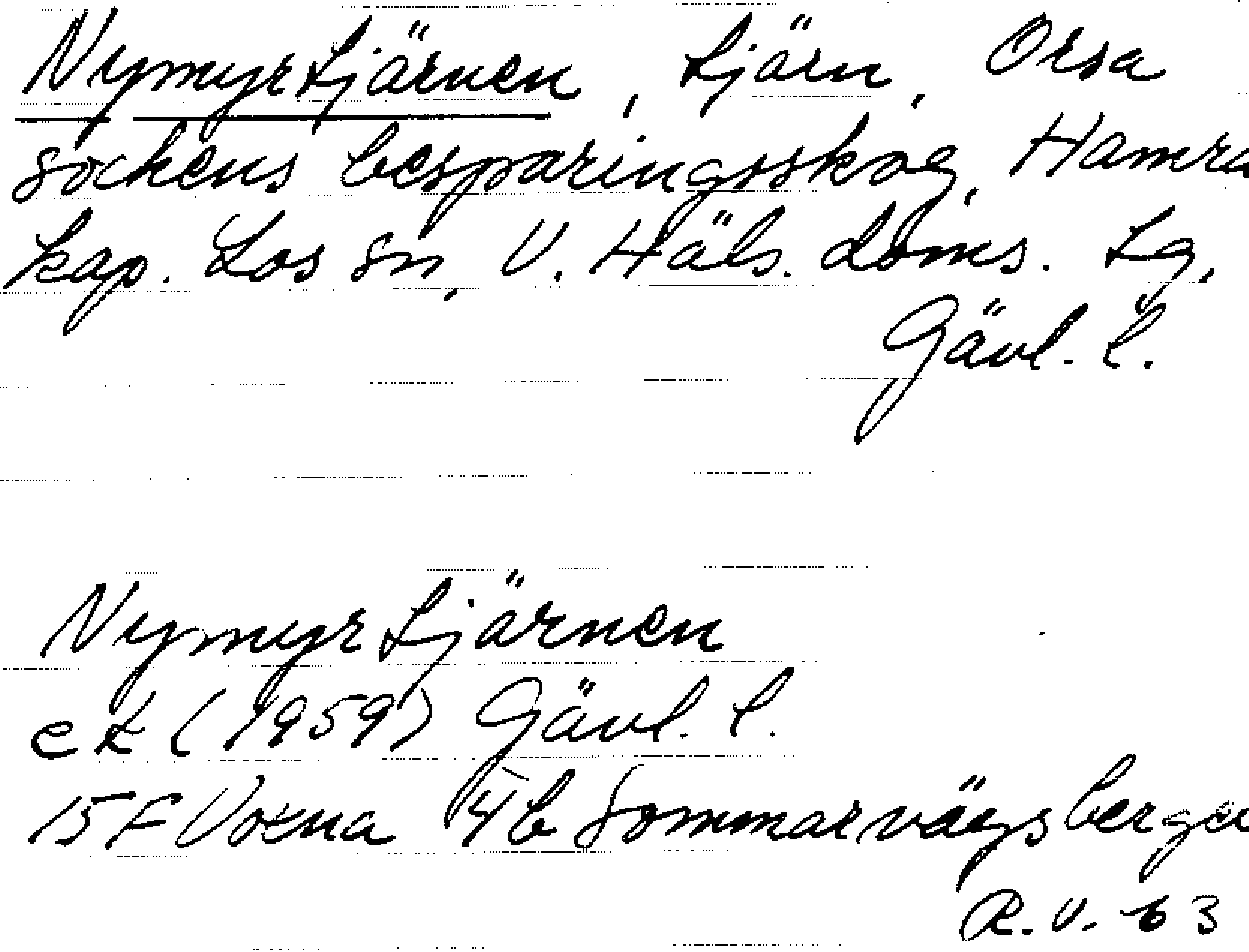 Nymyrtjärnen, tjärn, Orsa
sockens besparingsskog, Hamra
kap. Los sn, V. Häls. doms. Lg,
Gävl. l.
Nymyrtjärnen
ek (1959) Gävl. l.
15F Voxna 4b Sommarvägsberget
R.V. 63